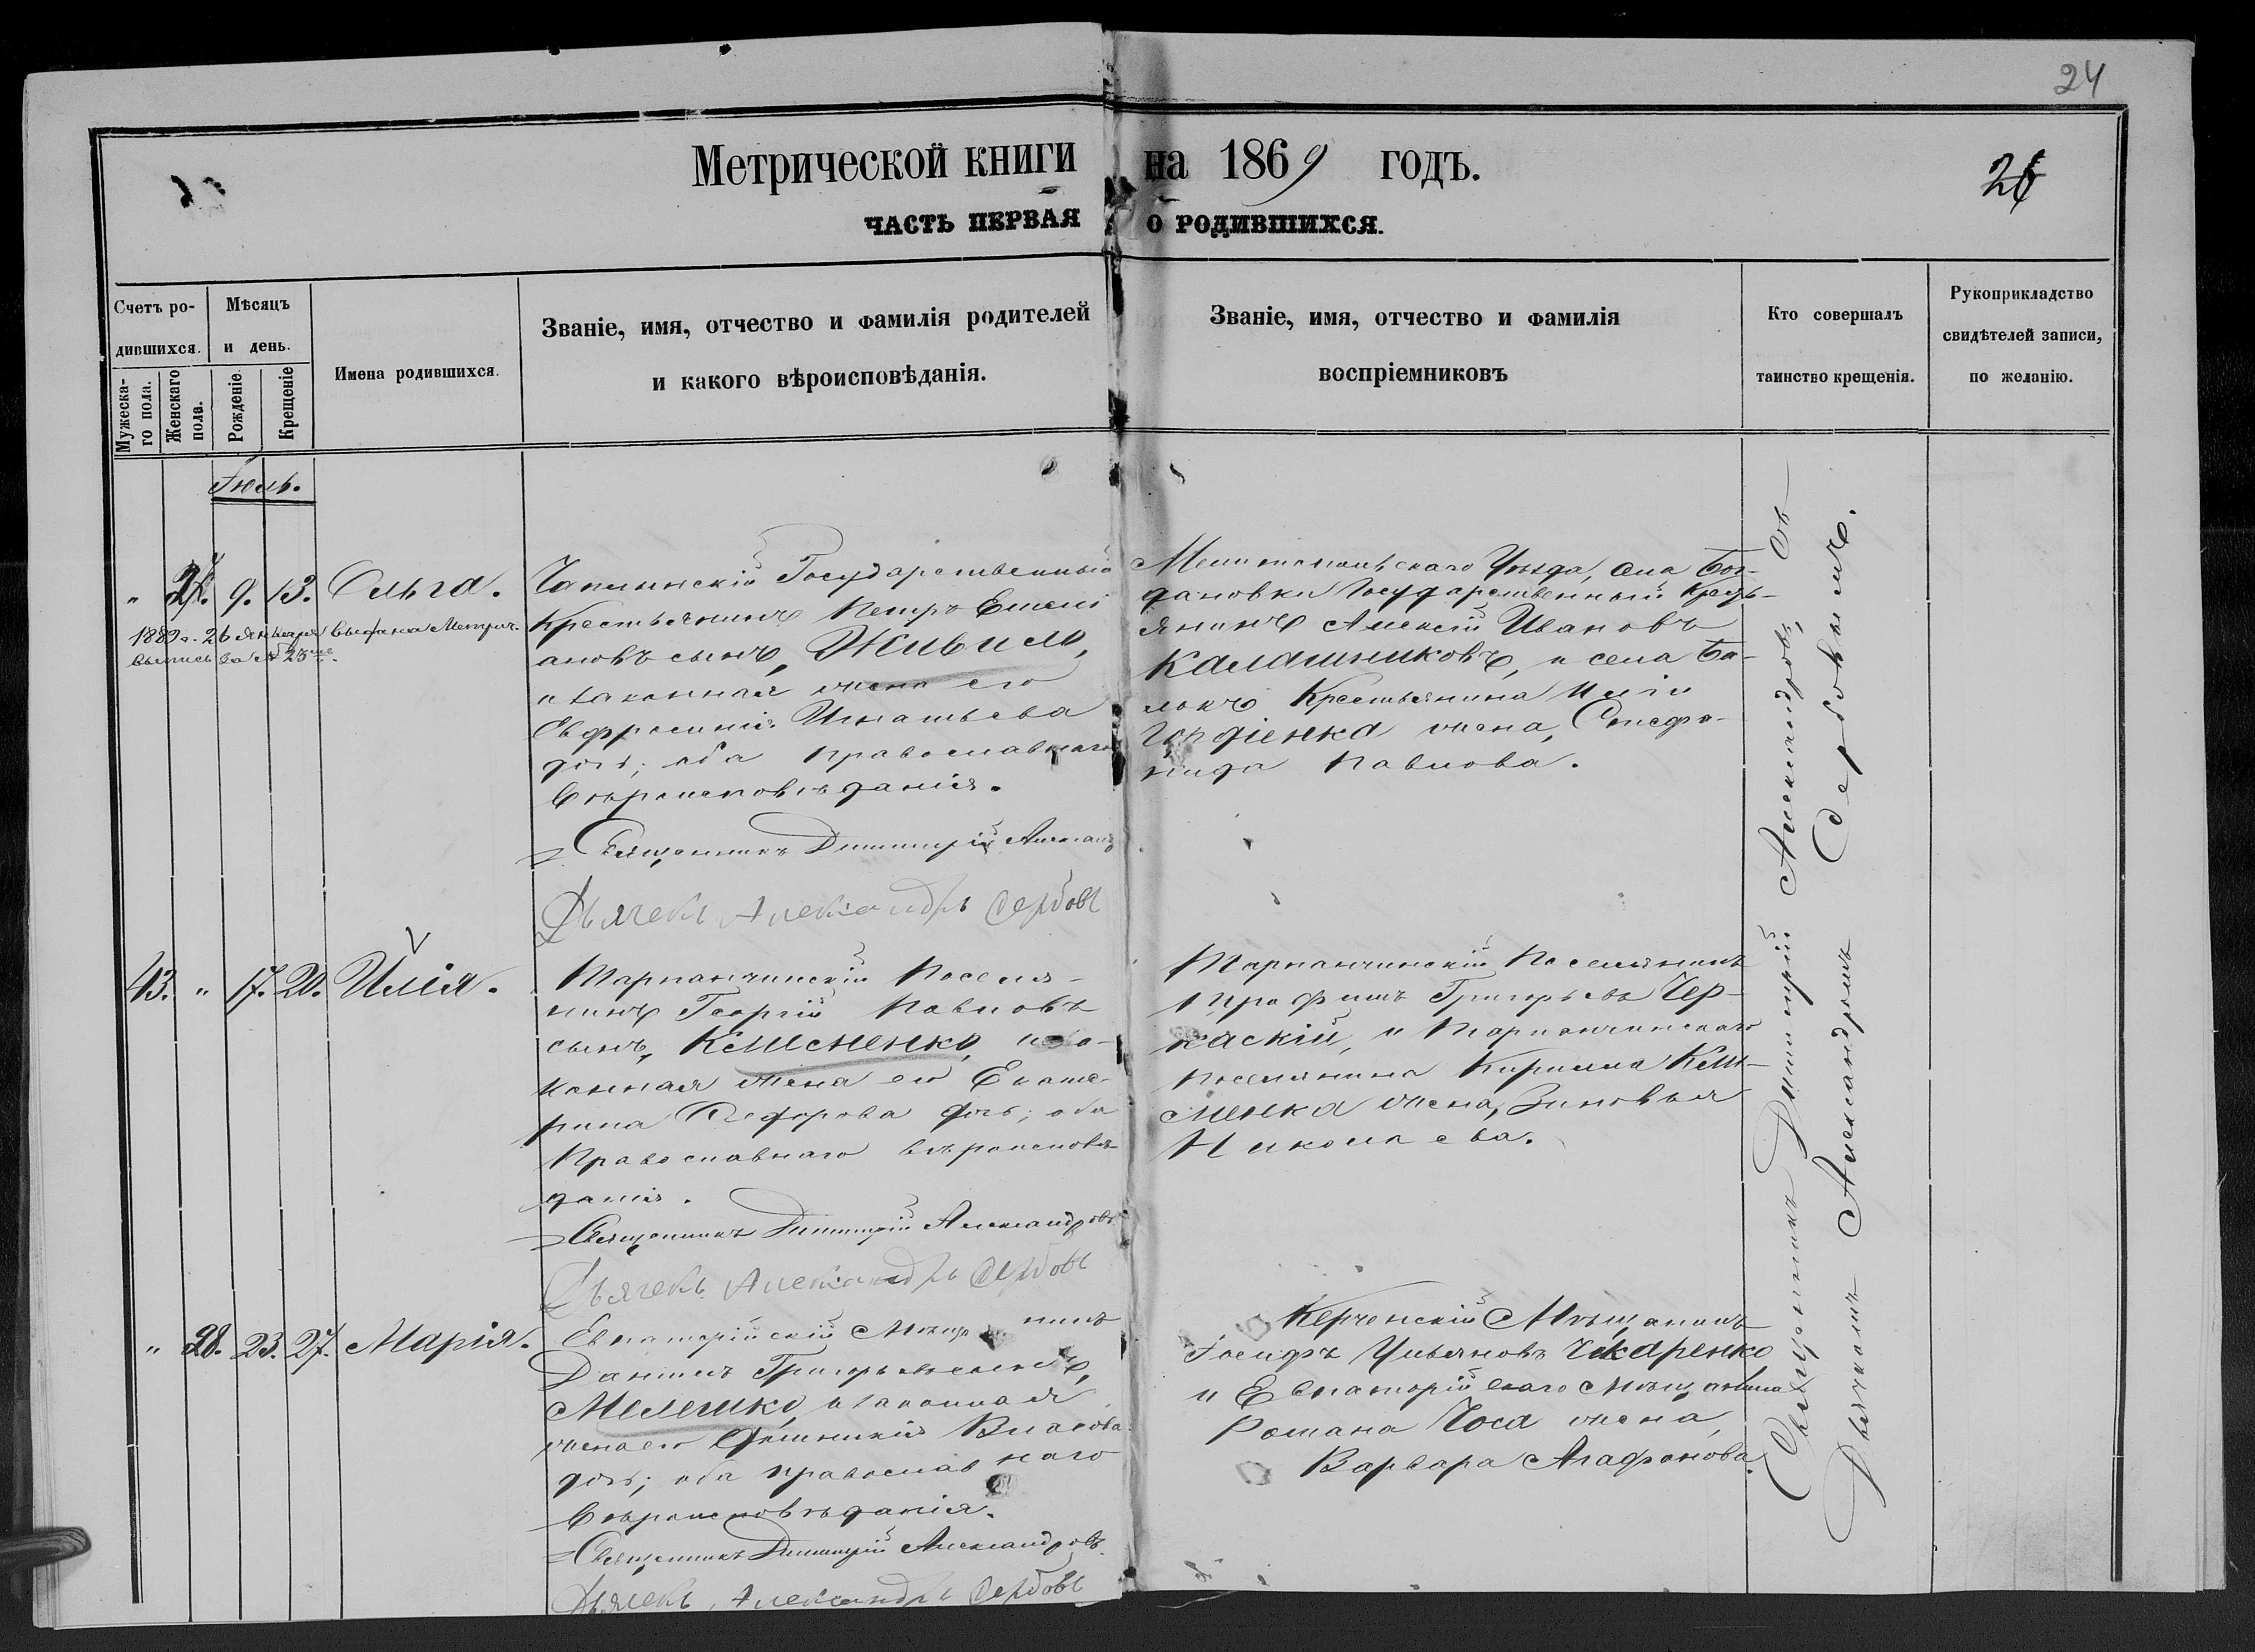 24
Метрической книги на 1869 годъ.
26
ЧАСТЬ ПЕРВАЯ О РОДИВШИХСЯ.
Счетъ ро-
дившихся.
Мужеска-
го пола.
Женскаго
пола.
Мѣсяцъ
и день.
Рожденіе.
Крещеніе
Имена родившихся.
Званіе, имя, отчество и фамилія родителей
и какого вѣроисповѣданія.
Званіе, имя, отчество и фамилія
воспріемниковъ
Кто совершалъ
таинство крещенія.
Рукоприкладство
свидѣтелей записи,
по желанію.
Іюль.
" 27. 9. 13. Ольга.
1889 г. 26 Января выдана Метрич.
выпись за № 25
Чаплинскій Государственный
Крестьянинъ Петръ Емели
ановъ сынъ, Живило,
и законная жена его
Евфросинія Игнатьева
дочь; оба православнаго
вѣроисповѣданія.
Священникъ Димитрій Александ
Дьячекъ Александръ Сербовъ
Мелитопольскаго Уѣзда, села Бог-
дановки Государственный Кресть-
янинъ Алексій Ивановъ
Калашниковъ, и села Ба-
локъ Крестьянина Иліи
Гордіенка жена, Стефа-
нида Павлова.
43. " 17. 20. Илія.
Тарханчинскій Поселя-
нинъ Георгій Павловъ
сынъ, Клименко, и за-
конная жена его Екате-
рина Феодорова дочь; оба
Православнаго вѣроисповѣ-
данія.
Священникъ Димитрій Александровъ
Дьячекъ Александръ Сербовъ
Тарханчинскій Поселянинъ
Трофимъ Григорьевъ Чер-
каскій, и Тарханчинскаго
поселянина Кирилла Кли-
менка жена, Зиновья
Николаева.
" 28. 23. 27. Марія.
Евпаторійскій Мѣщанинъ
Даніилъ Григорьевъ сынъ,
Мелешко, и законная
жена его Власова
дочь; оба православнаго
вѣроисповѣданія.
Священникъ Димитрій Александровъ.
Дьячекъ Александръ Сербовъ
Керченскій Мѣщанинъ
Іосифъ Ульяновъ
и Евпаторійскаго мѣщанина
Романа Чоса жена,
Варвара Агафонова.
Священникъ Димитрій Александровъ, съ
Дьячкомъ Александромъ Сербовымъ.